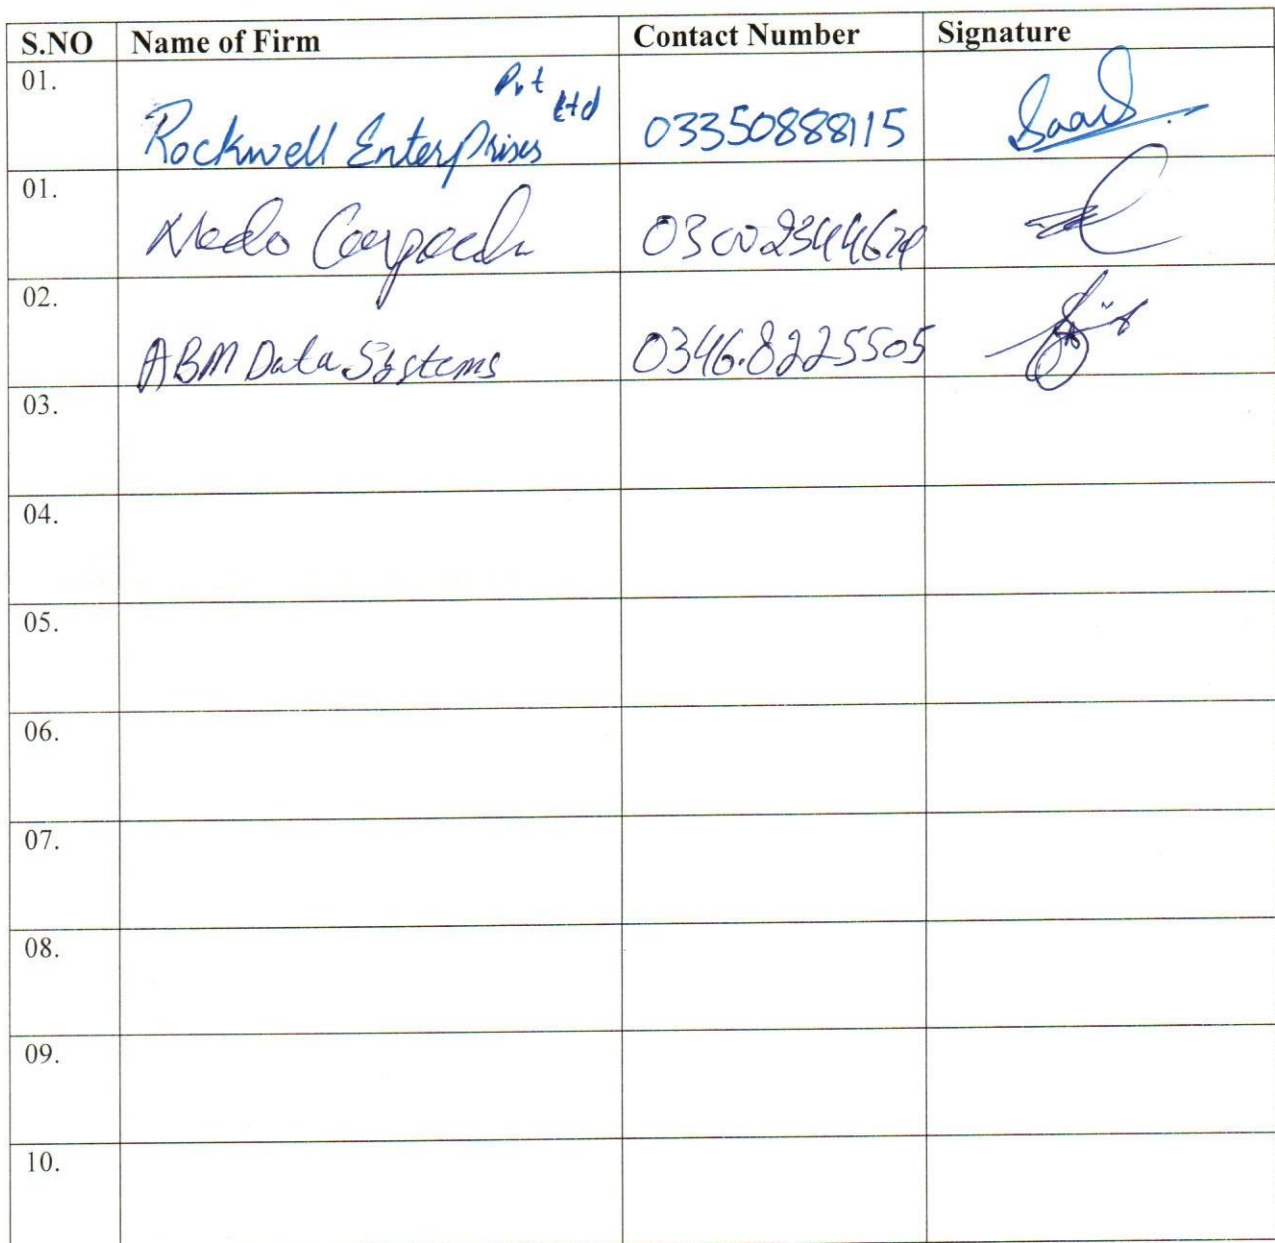 S.NO Name of Firm Contact Number Signature
01. Rockwell EnterPrises Pvt Ltd 03350888115 Saad
01.
02. ABM Data Systems 0346.8225505
03.
04.
05.
06.
07.
08.
09.
10.